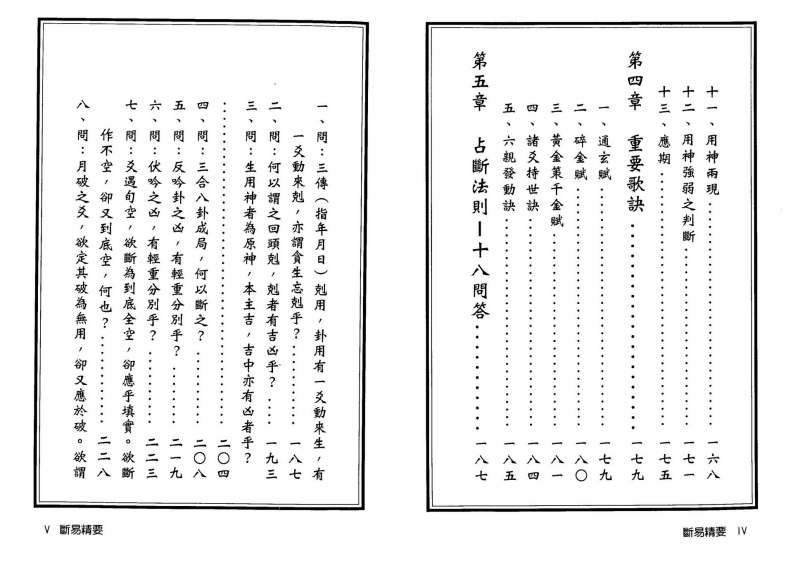 十一、用神兩現..................一六八
十二、用神強弱之判斷..................一七一
十三、應期..................一七五
第四章　重要歌訣..................一七九
一、通玄賦..................一七九
二、碎金賦..................一八〇
三、黃金策千金賦..................一八一
四、諸爻持世訣..................一八四
五、六親發動訣..................一八五
第五章　占斷法則—十八問答..................一八七
斷易精要　IV
一、問：三傳（指年月日）剋用，卦用有一爻動來生，有
一爻動來剋，亦謂貪生忘剋乎？..................一八七
二、問：何以謂之回頭剋，剋者有吉凶乎？..................一九三
三、問：生用神者為原神，本主吉，吉中亦有凶者乎？
..................二〇四
四、問：三合八卦成局，何以斷之？..................二〇八
五、問：反吟卦之凶，有輕重分別乎？..................二一九
六、問：伏吟之凶，有輕重分別乎？..................二二三
七、問：爻遇旬空，欲斷為到底全空，卻應乎填實。欲斷
作不空，卻又到底空，何也？..................二二八
八、問：月破之爻，欲定其破為無用，卻又應於破。欲謂
V　斷易精要